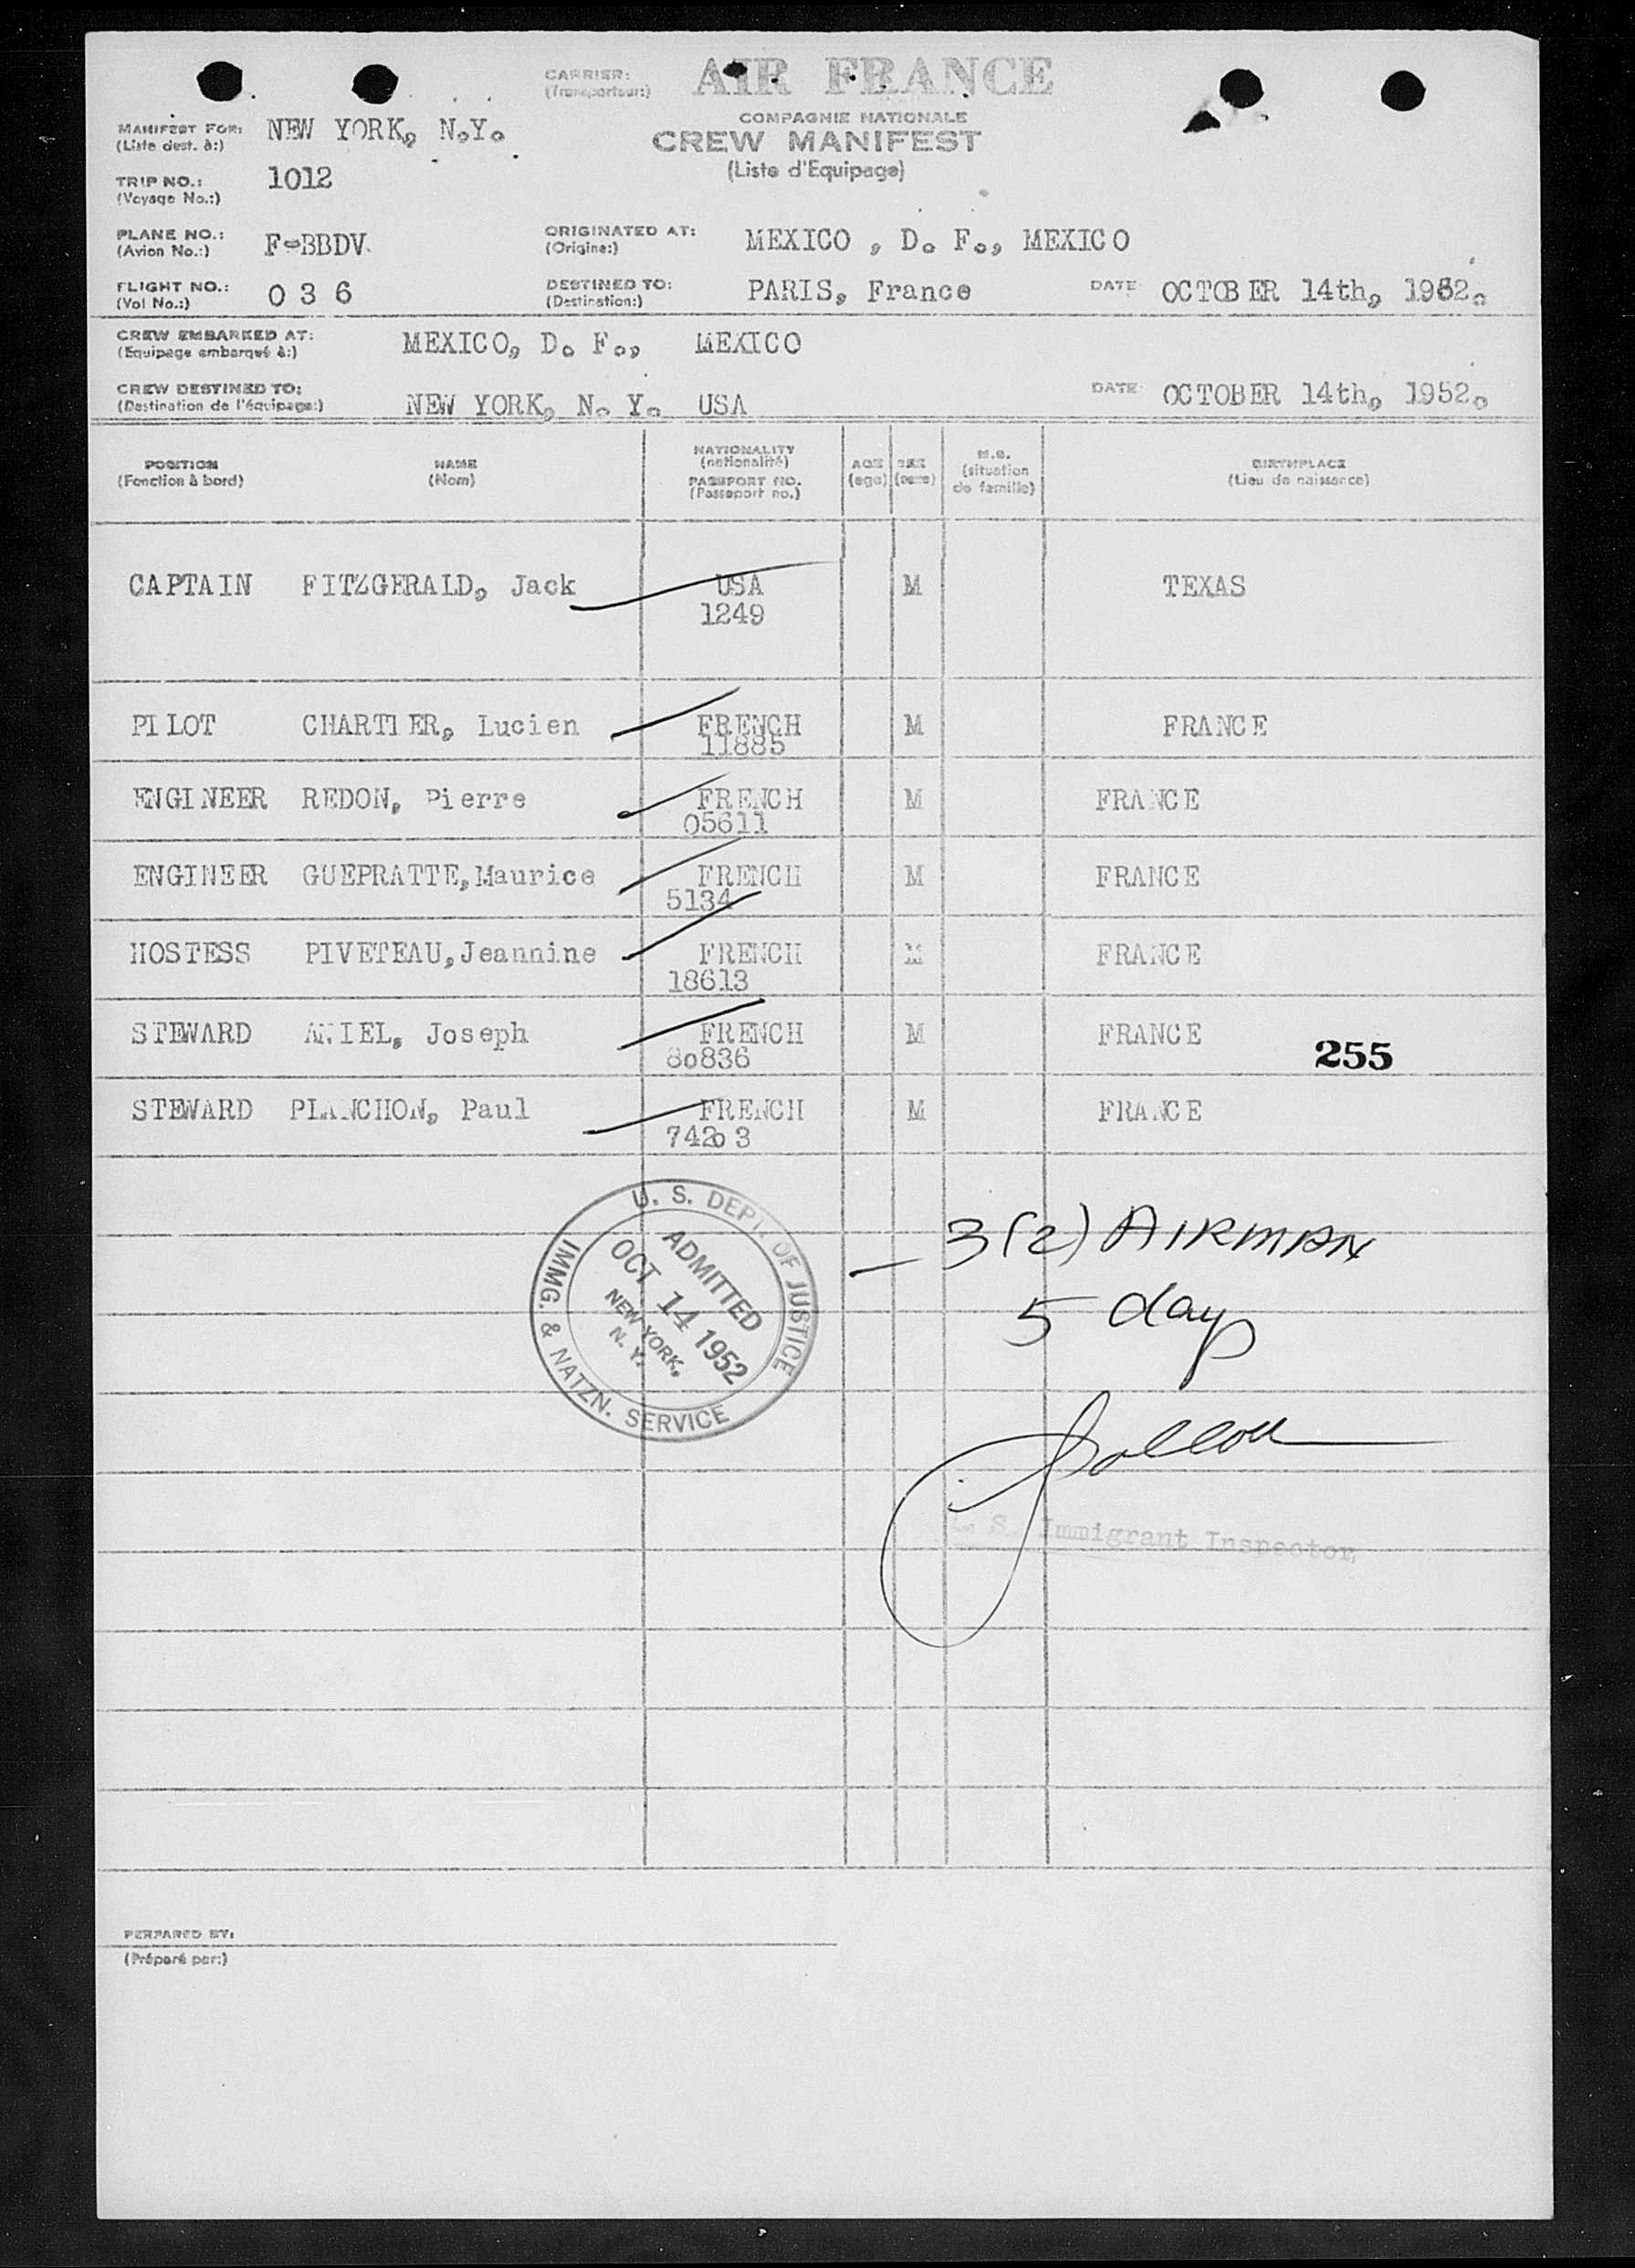 CARRIER: AIR FRANCE
(Transporteur:)
COMPAGNIE NATIONALE
CREW MANIFEST
(Liste d'Equipage)
MANIFEST FOR: NEW YORK, N.Y.
(Liste dest. à:)
TRIP NO.: 1012
(Voyage No.:)
PLANE NO.: F-BBDV. ORIGINATED AT: MEXICO , D. F., MEXICO
(Avion No.:) (Origine:)
FLIGHT NO.: 0 3 6 DESTINED TO: PARIS, France DATE OCTOBER 14th, 1952.
(Vol No.:) (Destination:)
CREW EMBARKED AT: MEXICO, D. F., MEXICO
(Equipage embarqué à:)
CREW DESTINED TO: NEW YORK, N. Y. USA DATE OCTOBER 14th, 1952.
(Destination de l'équipage:)
POSITION NAME NATIONALITY AGE SEX M.S. BIRTHPLACE
(Fonction à bord) (Nom) (nationalité) (age) (sexe) (situation de famille) (Lieu de naissance)
PASSPORT NO.
(Passeport no.)
CAPTAIN FITZGERALD, Jack USA M TEXAS
1249
PILOT CHARTIER, Lucien FRENCH M FRANCE
11885
ENGINEER REDON, Pierre FRENCH M FRANCE
05611
ENGINEER GUEPRATTE, Maurice FRENCH M FRANCE
5134
HOSTESS PIVETEAU, Jeannine FRENCH M FRANCE
18613
STEWARD AMIEL, Joseph FRENCH M FRANCE
80836
255
STEWARD PLANCHON, Paul FRENCH M FRANCE
7420 3
U. S. DEPT. OF JUSTICE
ADMITTED
OCT 14 1952
NEW YORK,
N. Y.
IMMG. & NATZN. SERVICE
3(2) AIRMAN
5 day
U. S. Immigrant Inspector
PERPARED BY:
(Préparé par:)